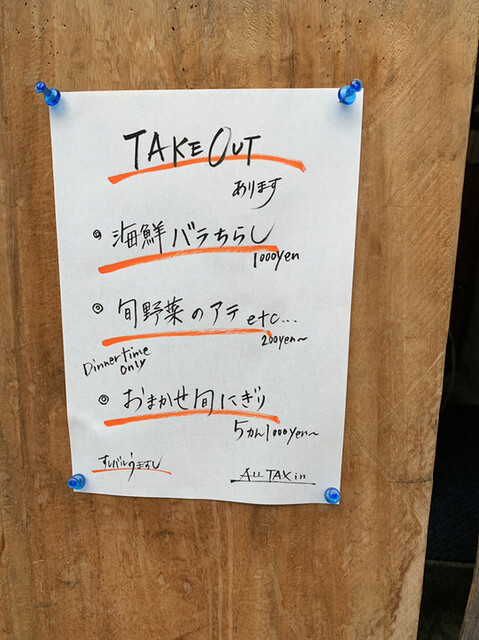 TAKE OUT
あります
◎ 海鮮バラちらし
1000yen
◎ 旬野菜のアテ etc...
200yen~
Dinnertime
only
◎ おまかせ旬にぎり
5かん1000yen~
ALL TAX in